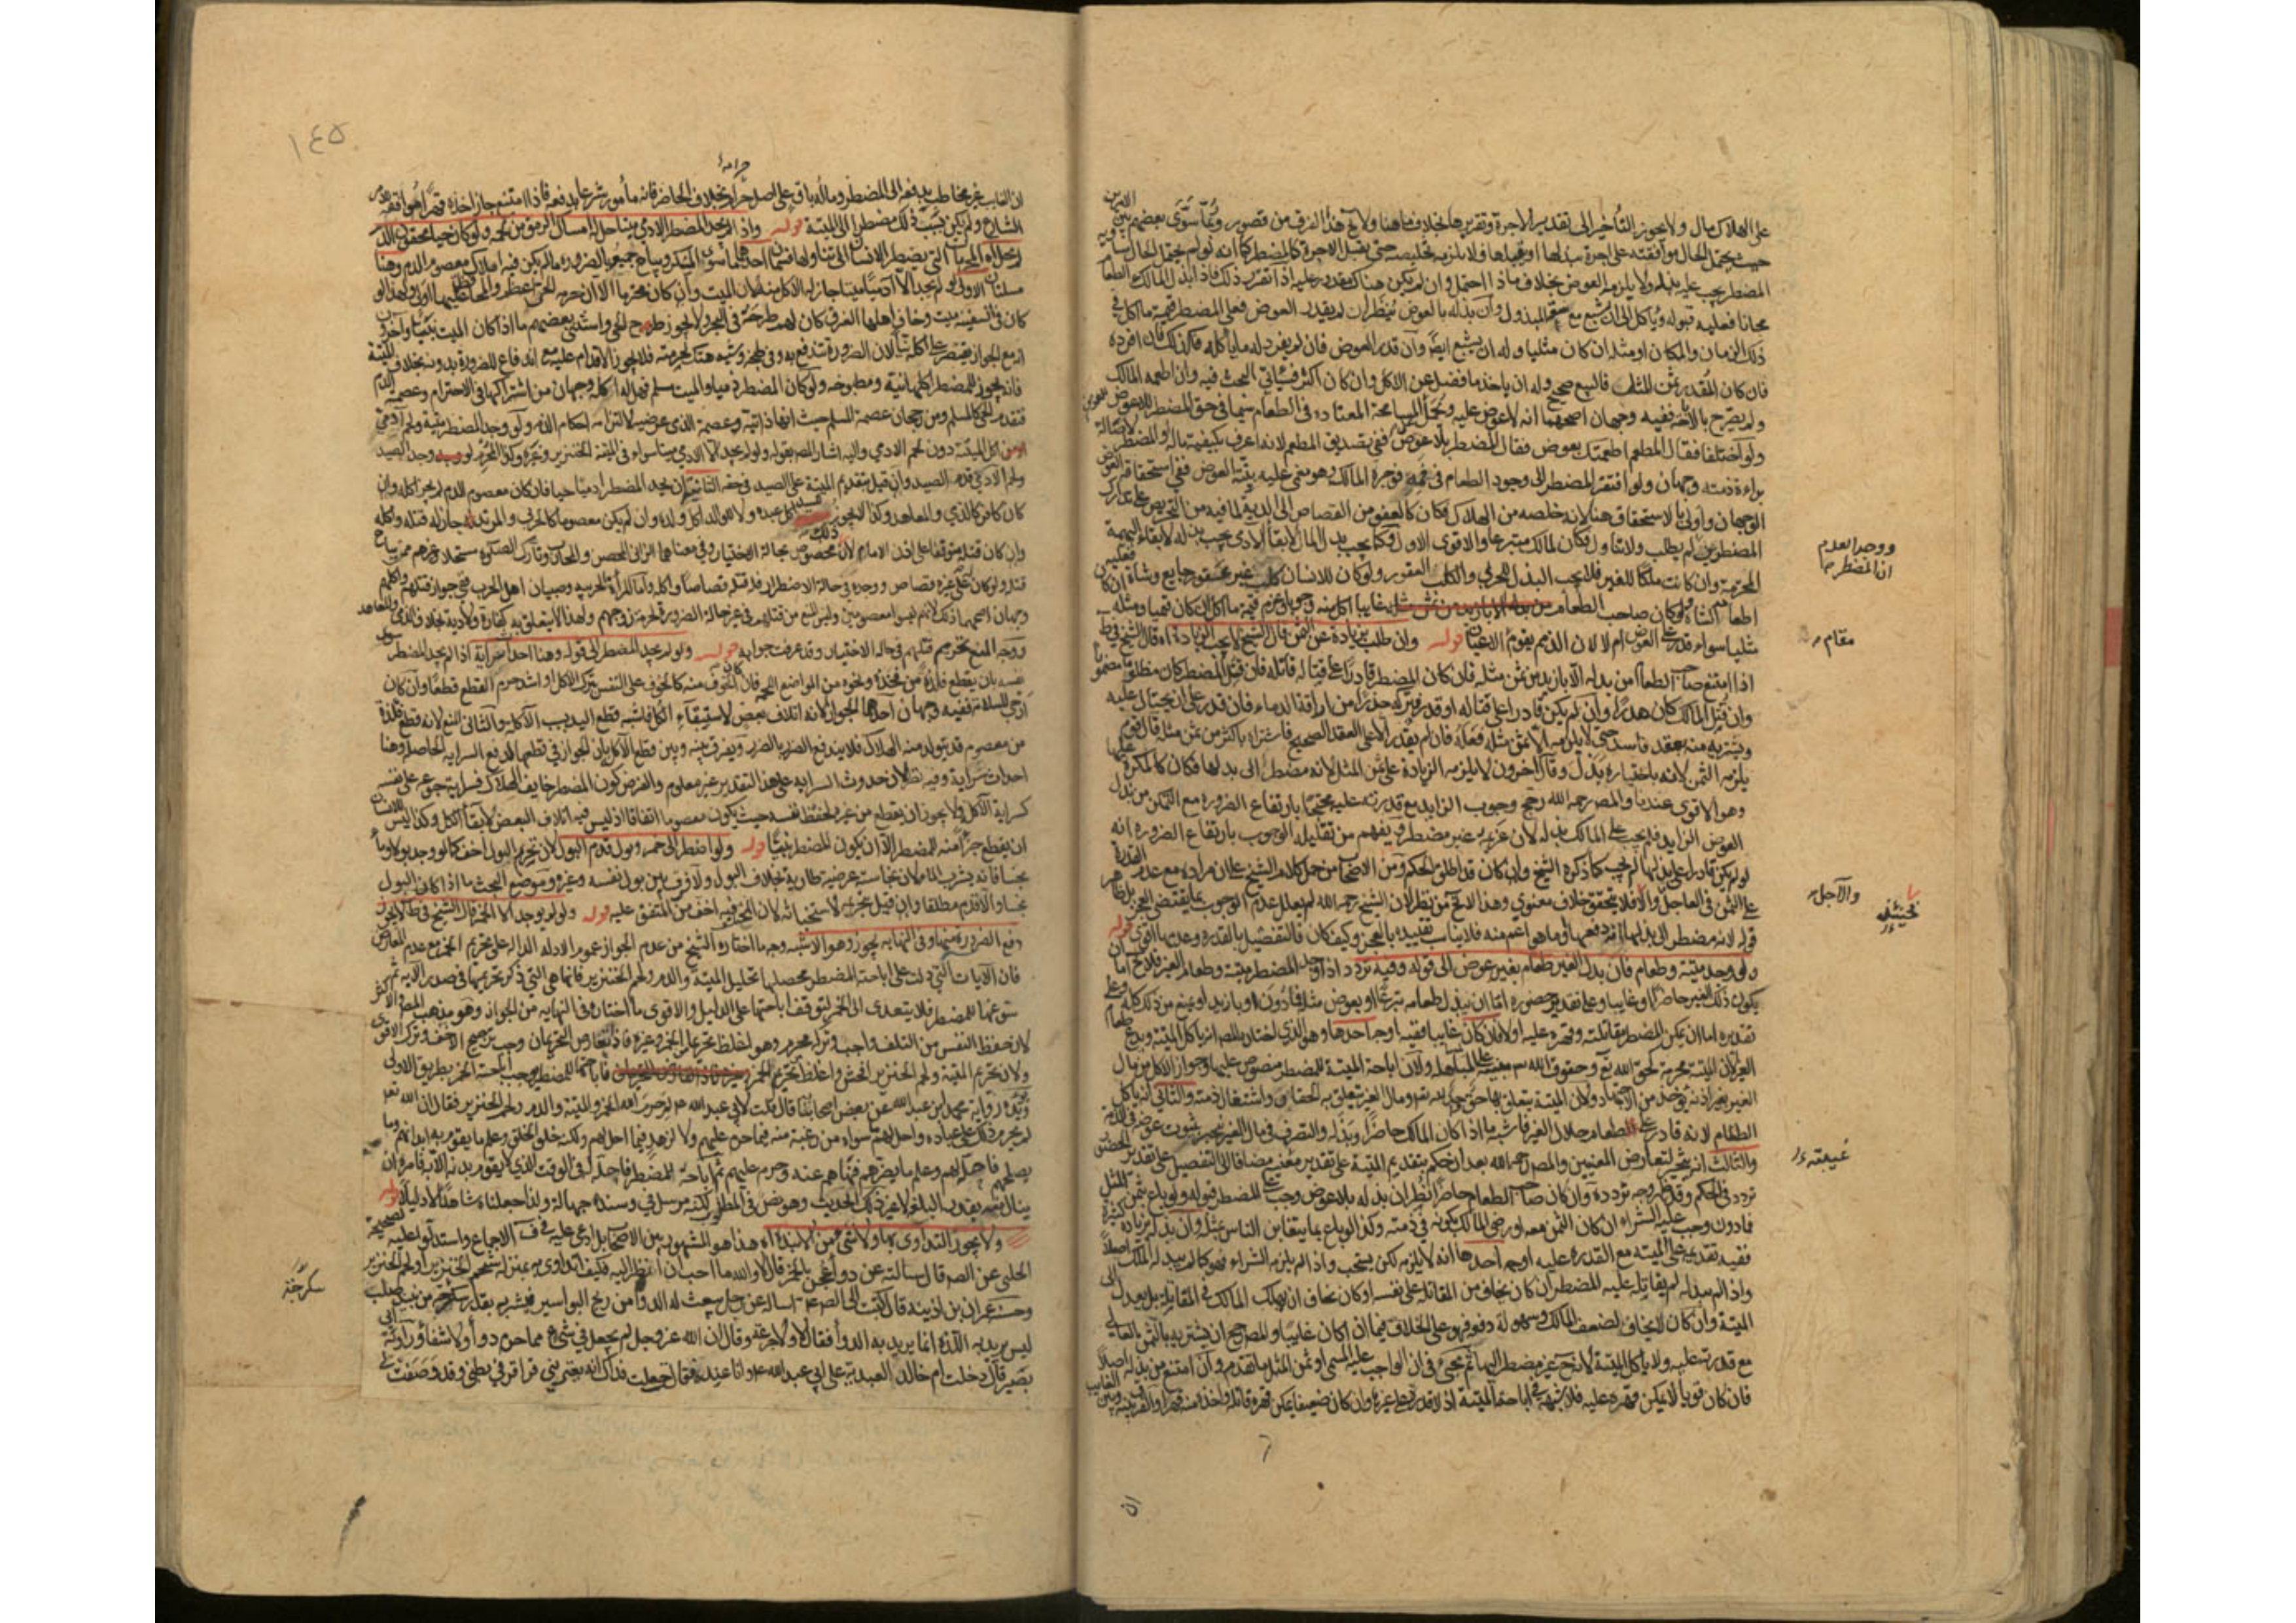 على الهلاك مال ولا يجوز التأخير إلى تقدير الأجرة وتقريرها بخلاف ما هنا ولا يخ هذا الفرق من قصور وربما سوى بعضهم بين الأمرين
حيث يحتمل الحال موافقته على أجرة يبذلها أو يقبلها فلا يلزمه تخليصه حتى يقبل الأجرة كالمضطر كما أنه لو لم يحتمل الحال
المضطر يجب عليه بذله ولا يلزمه العوض بخلاف ما إذا احتمل وإن لم يكن هناك مقدور عليه إذا تقرر ذلك فإذا بذل المالك الطعام
مجانا فعليه قبوله ويأكل إلى أن يشبع وإن بذله بالعوض نظر إن لم يقدر العوض فعلى المضطر قيمة ما أكل في
ذلك الزمان والمكان أو مثله إن كان مثليا وله أن يشبع أيضا وإن قدر العوض فإن لم يفرد له ما يأكله فكذلك وإن أفرده
فإن كان المقدر بثمن المثل فالبيع صحيح وله أن يأخذ ما فضل عن الأكل وإن كان أكثر فسيأتي البحث فيه وإن أطعمه المالك
ولم يصرح بالإباحة ففيه وجهان أصحهما أنه لا عوض عليه وتحمل المسامحة المعتادة في الطعام سيما في حق المضطر
ولو اختلفا فقال المطعم أطعمتك بعوض فقال المضطر بلا عوض ففي تصديق المطعم لأنه أعرف بكيفية ماله أو المضطر لأصالة
براءة ذمته وجهان ولو افتقر المضطر إلى وجود الطعام في فمه فوجره المالك وهو مغمى عليه بنية العوض ففي استحقاقه العوض
الوجهان وأولى بالاستحقاق هنا لأنه خلصه من الهلاك فكان كالعفو من القصاص إلى الدية لما فيه من التحريص على تدارك
المضطرين لم يطلب ولا تناول فكان المالك متبرعا والأقوى الأول وكما يجب بذل المال لإبقاء الآدمي يجب بذله لإبقاء البهيمة
المحترمة وإن كانت ملكا للغير فلا يجب البذل للحربي والكلب العقور ولو كان للإنسان كلب غير عقور جايع وشاة فعليه
إطعام الشاة ولو كان صاحب الطعام غايبا أكل منه وجوبا وغرم قيمة ما أكل إن كان قيميا ومثله إن كان
مثليا سواء قدر على العوض أم لا لأن الذمم يقوم الأعيان قوله وإن طلب زيادة عن الثمن قال الشيخ لا يجب الزيادة اه قال الشيخ في ط
إذا امتنع صاحب الطعام من بذله إلا بأزيد من ثمن مثله فإن كان المضطر قادرا على قتاله قاتله فإن قتل المضطر كان مظلوما مضمونا
وإن قتل المالك كان هدرا وإن لم يكن قادرا على قتاله أو قدر فتركه حذرا من إراقة الدماء فإن قدر على أن يحتال عليه
ويشتريه منه بعقد فاسد حتى لا يلزمه إلا ثمن مثله فعله فإن لم يقدر إلا على العقد الصحيح فاشتراه بأكثر من ثمن مثله قال قوم
يلزمه الثمن لأنه باختياره بذل وقال آخرون لا يلزمه الزيادة على ثمن المثل لأنه مضطر إلى بذلها فكان كالمكره عليها
وهو الأقوى عندنا والمصر رحمه الله رجح وجوب الزايد مع قدرته عليه محتجا بارتفاع الضرورة مع التمكن من بذل
العوض الزايد فلا يجب على المالك بذله لأن غريمه غير مضطر ويفهم من تعليله الوجوب بارتفاع الضرورة أنه
لو لم يكن قادرا على بذلها لم يجب كما ذكره الشيخ وإن كان قد أطلق الحكم ومن الأصحاب من حمل كلام الشيخ على أن مراده مع عدم القدرة
على الثمن في العاجل وإلا فلا يتحقق خلاف معنوي وهذا لا يخ من نظر لأن الشيخ رحمه الله لم يعلل عدم الوجوب بما يقتضي العجز بل ظاهر
قوله لأنه مضطر إلى بذلها ما هو أعم منه فلا يناسب تقييده بالعجز وكيف كان فالتفصيل بالقدرة وعدمها أقوى قوله
ولو وجد ميتة وطعام فإن بذل الغير طعامه بغير عوض إلى قوله وفيه تردد إذا وجد المضطر ميتة وطعام الغير فلا يخ إما أن
يكون ذلك الغير حاضرا أو غايبا وعلى تقدير حضوره إما أن يبذل طعامه تبرعا أو بعوض مثله فما دون أو بأزيد أو يمنع من ذلك كله وعلى
تقديره إما أن يمكن المضطر مقاتلته وقهره عليه أو لا فإن كان غايبا ففيه أوجه أحدها وهو الذي اختاره المصر أنه يأكل الميتة ويدع طعام
الغير لأن الميتة محرمة لحق الله تع وحقوق الله مبنية على المساهلة ولأن إباحة الميتة للمضطر منصوص عليها وجواز الأكل من مال
الغير بغير إذنه يؤخذ من الاجتهاد ولأن الميتة يتعلق بها حق واحد لله تع ومال الغير يتعلق به الحقان واشتغال الذمة والثاني أنه يأكل
الطعام لأنه قادر على الطعام حلال الغير فأشبه ما إذا كان المالك حاضرا وبذله والتصرف في مال الغير ينجبر بثبوت عوضه في الذمة
والثالث أنه يتخير لتعارض المعنيين والمصر رحمه الله بعد أن حكم بتقديم الميتة على تقدير مضافا إلى التفصيل على تقدير الحضور
تردد في الحكم وقد ظهر وجه تردده وإن كان صاحب الطعام حاضرا نظر إن بذله بلا عوض وجب على المضطر قبوله ولو باع بثمن المثل
فما دون وجب عليه الشراء إن كان الثمن معه أو رضي المالك بكونه في ذمته وكذا لو باع بما يتغابن الناس بمثله وإن بذله بزيادة كثيرة
ففيه تقديمه على الميتة مع القدرة عليه أوجه أحدها أنه لا يلزمه لكن يستحب وإذا لم يلزمه الشراء فهو كما لم يبذله المالك أصلا
وإذا لم يبذله لم يقاتله عليه المضطر إن كان يخاف من المقاتلة على نفسه أو كان يخاف أن يهلك المالك في المقاتلة بل يعدل إلى
الميتة وإن كان لا يخاف لضعف المالك وسهولة دفعه فهو على الخلاف فيما إذا كان غايبا والمرجح أن يشتريه بالثمن الغالي
مع قدرته عليه ولا يأكل الميتة لأنه ح غير مضطر إليها ثم يجيء في أن الواجب عليه المسمى أو ثمن المثل ما تقدم وإن امتنع من بذله أصلا
فإن كان قويا لا يمكن قهره عليه فلا شبهة في إباحة الميتة إذ لا قدرة على غيرها وإن كان ضعيفا يمكن قهره قاتله وأخذ منه قهرا والفرق بينه وبين الغايب
ان
ووجد العدم
ان المضطر
مقام
والآجل
فحينئذ
غيبته
١٤٥
حرامة
ان الغايب غير مخاطب بدفعه إلى المضطر وماله باق على أصل حرامه بخلاف الحاضر فإنه مأمور شرعا بدفعه فإذا امتنع جاز أخذه قهرا موافقة لأمر
الشارع ولم يكن حينئذ ذلك مضطرا إلى الميتة قوله وإذا لم يجد المضطر إلا الآدمي ميتا حل له إمساك الرمق من لحمه ولو كان حيا محقون الدم
لم يحل اه المحرمات التي يضطر الإنسان إلى تناولها قسمان أحدهما سوى المسكر ويباح جميعه بالضرورة ما لم يكن فيه إهلاك معصوم الدم وهنا
مسئلتان الأولى لو لم يجد إلا آدميا ميتا جاز له الأكل منه لأن الميت وإن كان محترما إلا أن حرمة الحي أعظم والمحافظة عليها أولى ولهذا لو
كان في السفينة ميت وخاف أهلها الغرق كان لهم طرحه في البحر ولا يجوز طرح الحي واستثنى بعضهم ما إذا كان الميت نبيا وآخرون
أنه مع الجواز يقتصر على أكله نيا لأن الضرورة تندفع به وفي طبخه وشيه هتك لحرمته فلا يجوز الإقدام عليه مع اندفاع الضرورة بدونه بخلاف الميتة
فإنه يجوز للمضطر أكلها نية ومطبوخة ولو كان المضطر ذميا والميت مسلم فهل له أكله وجهان من اشتراكهما في الاحترام وعصمة الدم
فتقدم الحي كالمسلم ومن رجحان عصمة المسلم حيث إنها ذاتية وعصمة الذمي عرضية لالتزامه أحكام الذمة ولو وجد المضطر ميتة ولحم آدمي
أكل الميتة دون لحم الآدمي وإليه أشار المصر بقوله ولو لم يجد إلا الآدمي ميتا سواء في الميتة الخنزير وغيره وكذا المحرم لو وجد الصيد
ولحم الآدمي قدم الصيد وإن قيل بتقديم الميتة على الصيد في حقه الثانية أن يجد المضطر آدميا حيا فإن كان معصوم الدم لم يجز أكله وإن
كان كافرا كالذمي والمعاهد وكذا لا يجوز للسيد أكل عبده ولا للوالد أكل ولده وإن لم يكن معصوما كالحربي والمرتد جاز له قتله وأكله
وإن كان قتله متوقفا على إذن الإمام لأن ذلك مخصوص بحالة الاختيار وفي معناهما الزاني المحصن والمحارب وتارك الصلوة مستحلا وغيرهم ممن يباح
قتله ولو كان له على غيره قصاص ووجده في حالة الاضطرار فله قتله قصاصا وأكله وأما المرأة الحربية وصبيان أهل الحرب ففي جواز قتلهم وأكلهم
وجهان أصحهما ذلك لأنهم ليسوا معصومين وليس المنع من قتلهم في غير حالة الضرورة لحرمة روحهم ولهذا لا يتعلق به كفارة ولا دية بخلاف الذمي والمعاهد
ووجه المنع تحريم قتلهم في حالة الاختيار وقد عرفت جوابه قوله ولو لم يجد المضطر إلى قوله وهنا إحداث سراية إذا لم يجد المضطر سوى
نفسه بأن يقطع فلذة من فخذه ونحوه من المواضع اللحمة فإن كان الخوف منه كالخوف على النفس بترك الأكل أو أشد حرم القطع قطعا وإن كان
أرجى للسلامة ففيه وجهان أحدهما الجواز لأنه إتلاف بعض لاستبقاء الكل فأشبه قطع اليد بسبب الآكلة والثاني المنع لأنه قطع فلذة
من معصوم قد يتولد منه الهلاك فلا يندفع الضرر بالضرر ويفرق بينه وبين قطع الآكلة بأن الجواز في قطعها لدفع السراية الحاصلة وهنا
إحداث سراية وفيه نظر لأن حدوث السراية على هذا التقدير غير معلوم والفرض كون المضطر خايف الهلاك فسراية جوعه على نفسه
كسراية الآكلة ولا يجوز أن يقطع من غيره لحفظ نفسه حيث يكون معصوما اتفاقا إذ ليس فيه إتلاف البعض لإبقاء الكل وكذا ليس للإنسان
أن يقطع جزءا منه للمضطر إلا أن يكون المضطر نبيا قوله ولو اضطر إلى خمر وبول قدم البول لأن تحريم البول أخف كما لو وجد بولا وماء
نجسا فإنه يشرب الماء لأن نجاسته عرضية طارية بخلاف البول ولا فرق بين بول نفسه وغيره وموضع البحث ما إذا كان البول
نجسا وإلا قدم مطلقا وإن قيل بتحريمه لاستخباثه لأن المختلف فيه أخف من المتفق عليه قوله ولو لم يوجد إلا الخمر قال الشيخ في ط لا يجوز
دفع الضرورة بها وفي النهاية يجوز وهو الأشبه وجه ما اختاره الشيخ من عدم الجواز عموم الأدلة الدالة على تحريم الخمر مع عدم المعارض
فإن الآيات التي دلت على إباحة المضطر محصلها تحليل الميتة والدم ولحم الخنزير فإنها هي التي ذكر تحريمها في صدر الآية ثم
سوغها للمضطر فلا يتعدى إلى الخمر لتوقف إباحتها على الدليل والأقوى ما اختاره في النهاية من الجواز وهو مذهب المصر والأكثر
لأن حفظ النفس من التلف واجب وتركه محرم وهو أغلظ تحريما من الخمر وغيره فإذا تعارض التحريمان وجب ترجيح الأخف وترك الأقوى
ولأن تحريم الميتة ولحم الخنزير أفحش وأغلظ من تحريم الخمر فإباحتهما للمضطر يوجب إباحة الخمر بطريق الأولى
ويؤيده رواية محمد بن عبد الله عن بعض أصحابنا قال قلت لأبي عبد الله ع لم حرم الله الخمر والميتة والدم ولحم الخنزير فقال إن الله تع
لم يحرم ذلك على عباده وأحل لهم ما سواه من رغبة منه فيما حرم عليهم ولا لزهد فيما أحل لهم ولكنه خلق الخلق وعلم ما يقوم به أبدانهم وما
يصلحهم فأحله لهم وعلم ما يضرهم فنهاهم عنه وحرم عليهم ثم أباحه للمضطر فأحله له في الوقت الذي لا يقوم بدنه إلا به فأمره أن
ينال منه بقدر البلغة لا غير ذلك الحديث وهو نص في المطلوب لكنه مرسل وفي سنده جهالة ولذا جعلناه شاهدا لا دليلا قوله
ولا يجوز التداوي بها ولا بشيء من الأنبذة اه هذا هو المشهور بين الأصحاب بل ادعى عليه في ف الإجماع واستدلوا عليه بصحيحة
الحلبي عن الصم قال سألته عن دواء عجن بالخمر قال لا والله ما أحب أن أنظر إليه فكيف أتداوى به بمنزلة شحم الخنزير أو لحم الخنزير
وحسنة عمر بن أذينة قال كتبت إلى الصم ع أسأله عن رجل يبعث له الدواء من ريح البواسير فيشربه بقدر سكرجة من نبيذ صلب
ليس يريد به اللذة إنما يريد به الدواء فقال لا ولا جرعة وقال إن الله عز وجل لم يجعل في شيء مما حرم دواء ولا شفاء ورواية أبي
بصير قال دخلت أم خالد العبدية على أبي عبد الله ع وأنا عنده فقالت جعلت فداك إنه يعتريني قراقر في بطني وقد وصفت لي
سكرجة